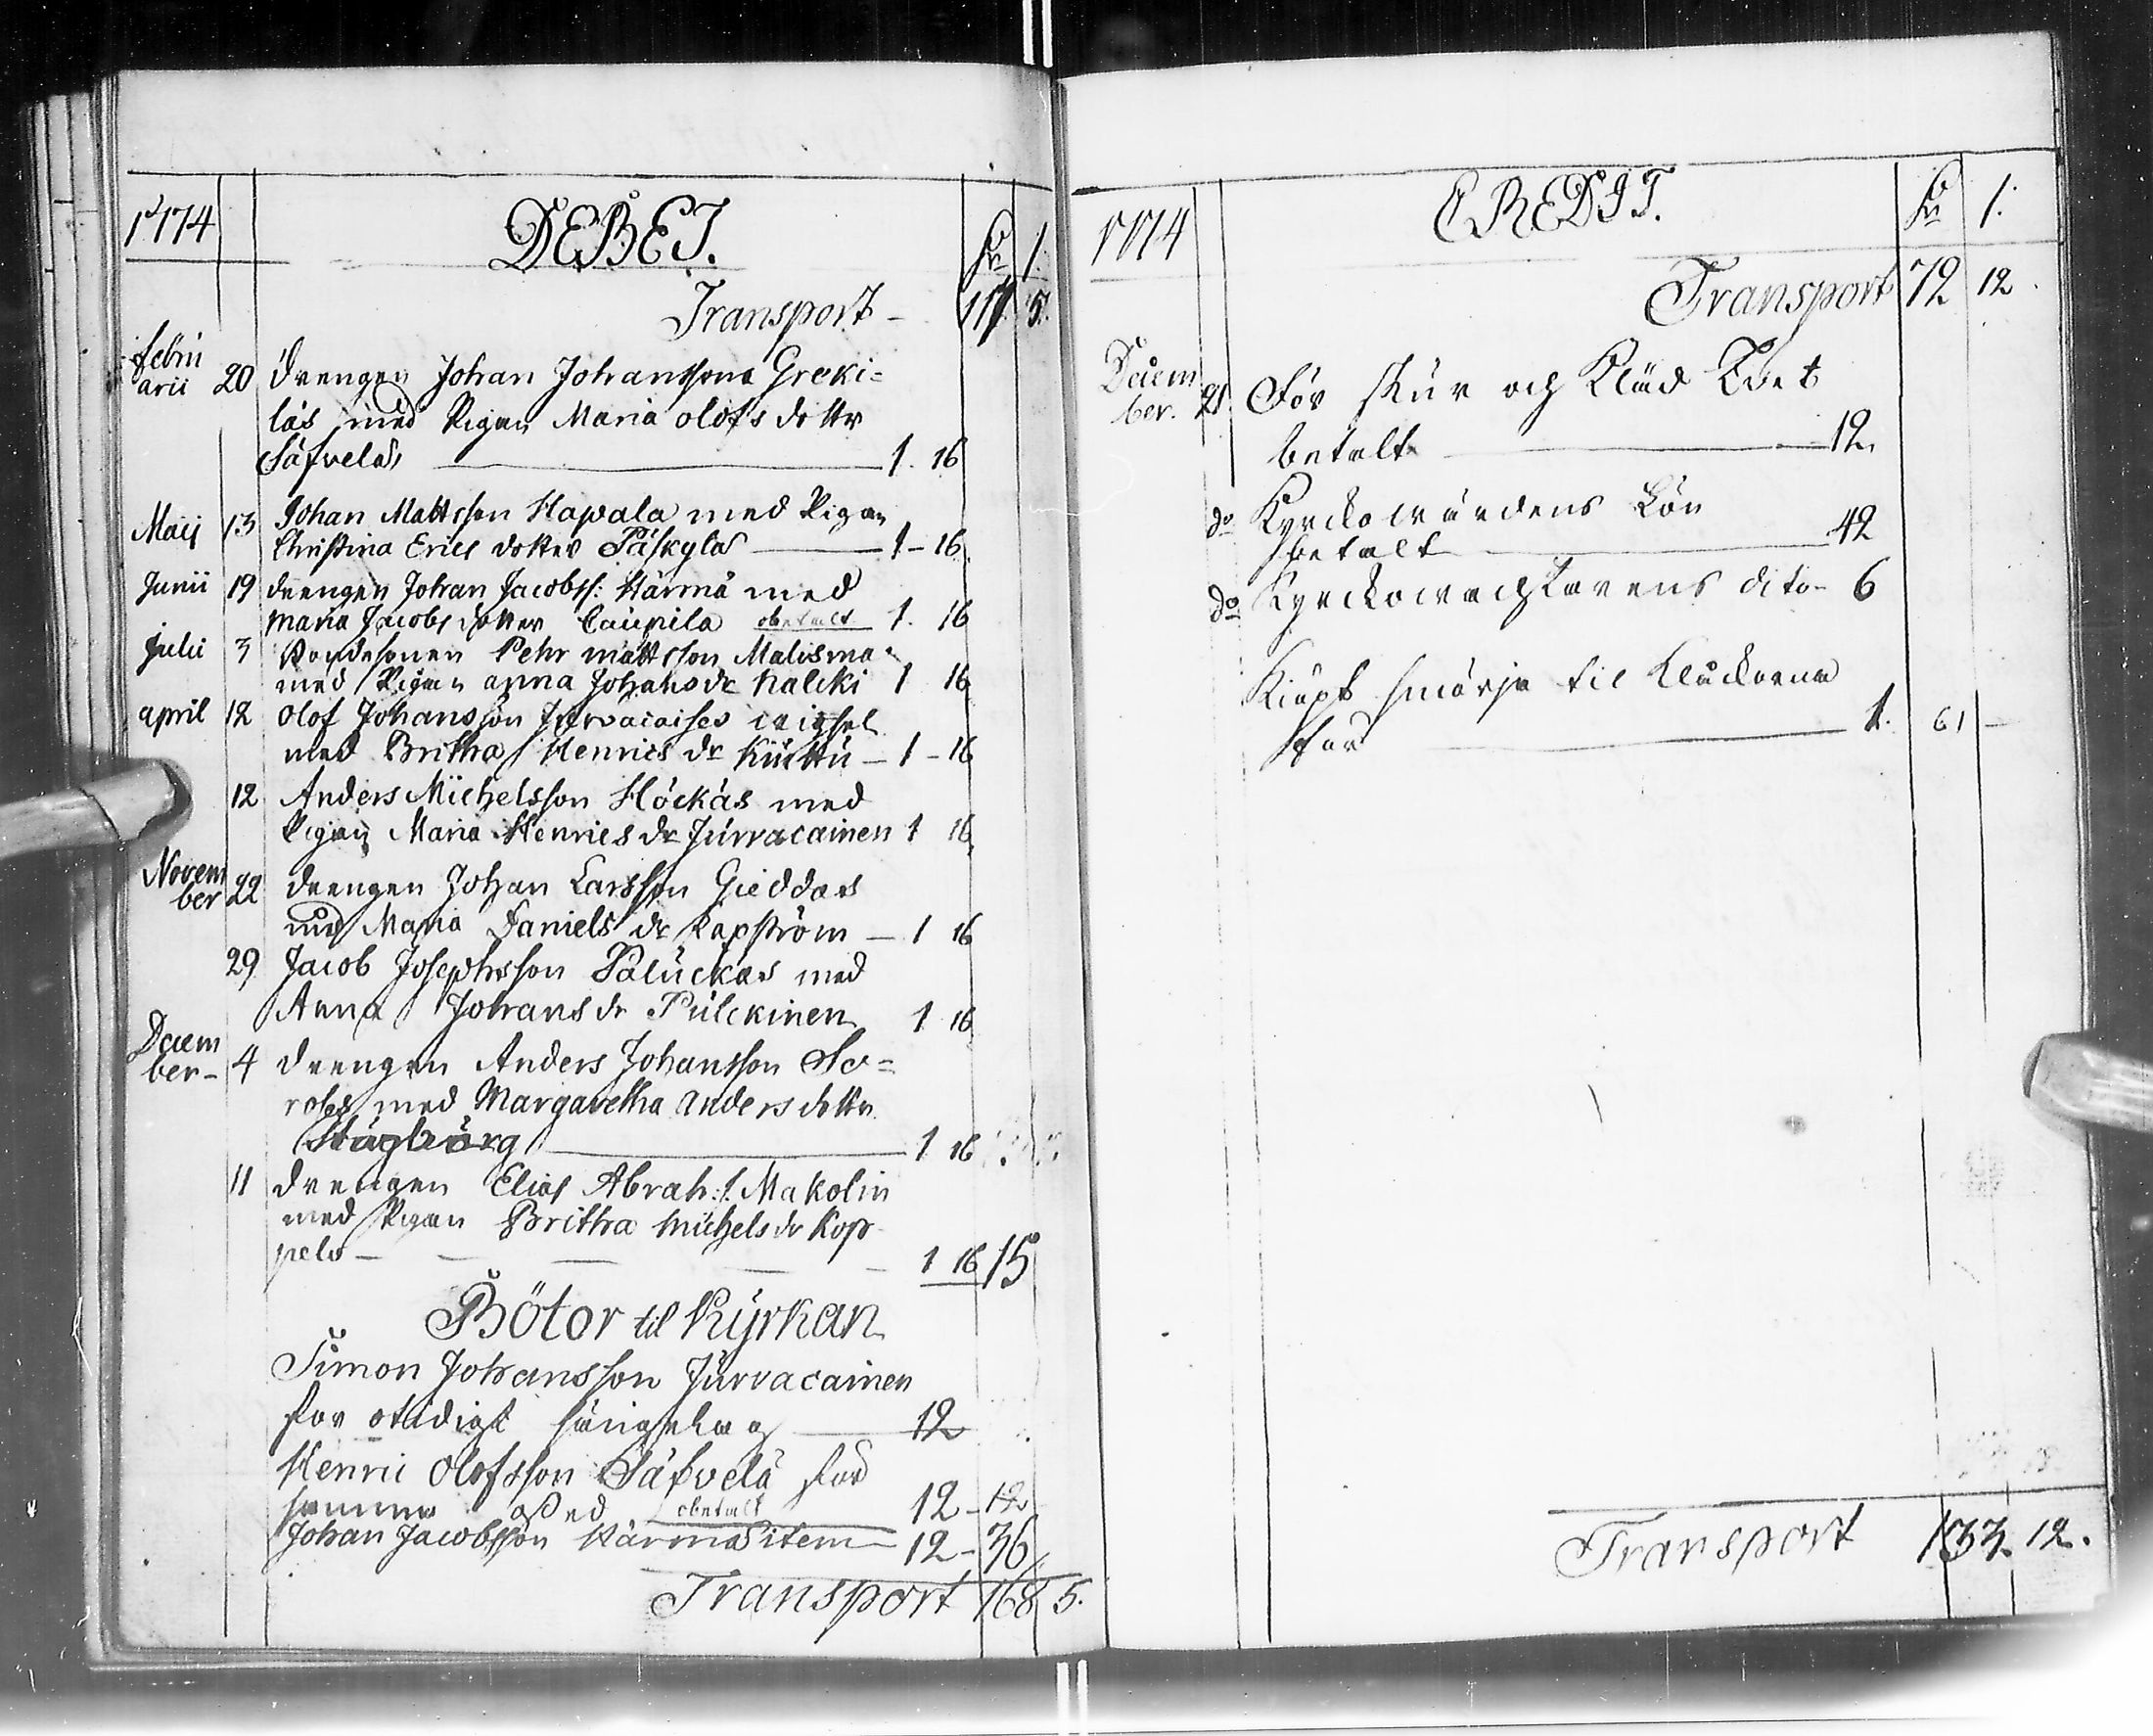 1774
DEBET.
Kr 1.
Transport - 117. 5.
febru
arii 20 drengen Johan Johanssons Greki=
läs med Pigan Maria olofs dotter
Säfvelas 1. 16
Maij 13 Johan Mattsson Hapala med Pigan
Christina Erics dotter Påskyla 1-16
Junii 19 drengen Johan Jacobss: Härmä med
Maria Jacobs dotter Caupila obetalt 1. 16
Julii 3 Pehr mattsson Malisma
med Pigan anna Johans dr Kalcki 1 16
april 12 Olof Johansson
med Britha Henrics dr Kuttu - 1-16
12 Anders Michelsson Höckäs med
Pigan Maria Henrics dr Jurvacainen 1 16
Novem
ber 22 drengen Johan Larsson Gieddas
med Maria Daniels dr Kapström - 1 16
29 Jacob Josephsson Paluckas med
Anna Johans dr Pulckinen 1 16
Decem
ber- 4 drengen Anders Johansson So=
med Margaretha anders dotter
1 16
11 drengen Elias Abrah: s. Makolin
med Pigan Britha Michels dr Kop
pelo - 1 16 15
Bötor til Kyrkan
Simon Johansson Jurvacainen
för otidigt sängelag 12
Henric Olofsson Säfvelä för
samma obetalt 12-12
Johan Jacobsson Härmä item 12-36
Transport 168 5.
1774
CREDIT.
Kr 1.
Transport 72 12.
Decem
ber. 21. För skur och Kläd Tvet
betalt 12.
do Kyrckowärdens Lön
betalt 42
do Kyrckowachtarens dito - 6
Kiöpt smörja til Kläckorna
för 1. 61 -
Transport 133. 12.